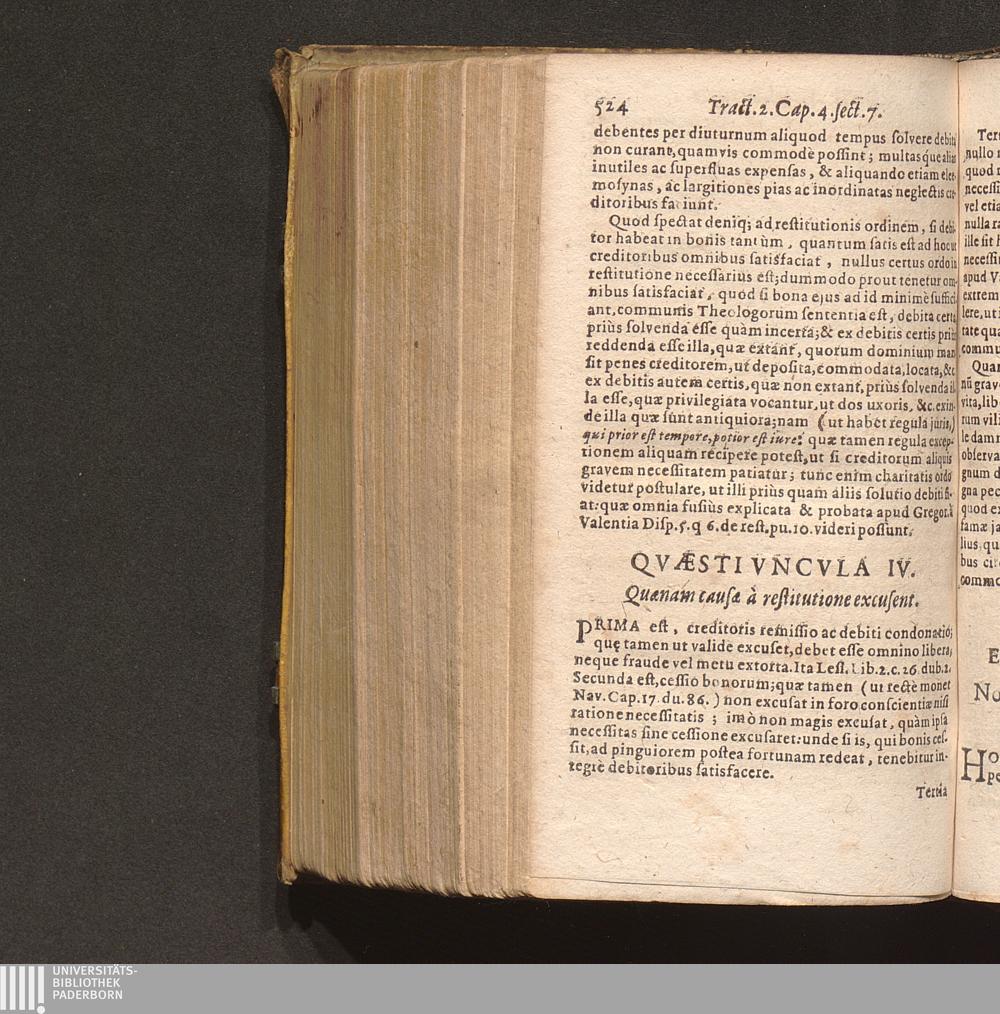 524 Tract.2.Cap.4.sect.7.
debentes per diuturnum aliquod tempus solvere debita
non curant, quamvis commodè possint; multasque alias
inutiles ac superfluas expensas, & aliquando etiam elee-
mosynas, ac largitiones pias ac inordinatas neglectis cre-
ditoribus faciunt.
Quod spectat deniq; ad restitutionis ordinem, si debi-
tor habeat in bonis tantùm, quantum satis est ad hoc ut
creditoribus omnibus satisfaciat, nullus certus ordo in
restitutione necessarius est; dummodo prout tenetur om-
nibus satisfaciat, quòd si bona ejus ad id minimè suffici-
ant, communis Theologorum sententia est, debita certa
priùs solvenda esse quàm incerta; & ex debitis certis priùs
reddenda esse illa, quæ extant, quorum dominium man-
sit penes creditorem, ut deposita, commodata, locata, &c.
ex debitis autem certis, quæ non extant, priùs solvenda il-
la esse, quæ privilegiata vocantur, ut dos uxoris, &c. exin-
de illa quæ sunt antiquiora; nam (ut habet regula juris,)
qui prior est tempore, potior est iure: quæ tamen regula excep-
tionem aliquam recipere potest, ut si creditorum aliquis
gravem necessitatem patiatur; tunc enim charitatis ordo
videtur postulare, ut illi priùs quam aliis solutio debiti fi-
at: quæ omnia fusiùs explicata & probata apud Gregor. à
Valentia Disp.5.q 6.de rest.pu.10.videri possunt.
QVÆSTIVNCVLA IV.
Quænam causæ à restitutione excusent.
PRIMA est, creditoris remissio ac debiti condonatio;
quę tamen ut validè excuset, debet esse omnino libera,
neque fraude vel metu extorta. Ita Less. Lib.2.c.26 dub.2.
Secunda est, cessio bonorum; quæ tamen (ut rectè monet
Nav. Cap.17.du.86.) non excusat in foro conscientiæ nisi
ratione necessitatis; imò non magis excusat, quàm ipsa
necessitas sine cessione excusaret: unde si is, qui bonis ces-
sit, ad pinguiorem postea fortunam redeat, tenebitur in-
tegrè debitoribus satisfacere.
Tertia
UNIVERSITÄTS-
BIBLIOTHEK
PADERBORN